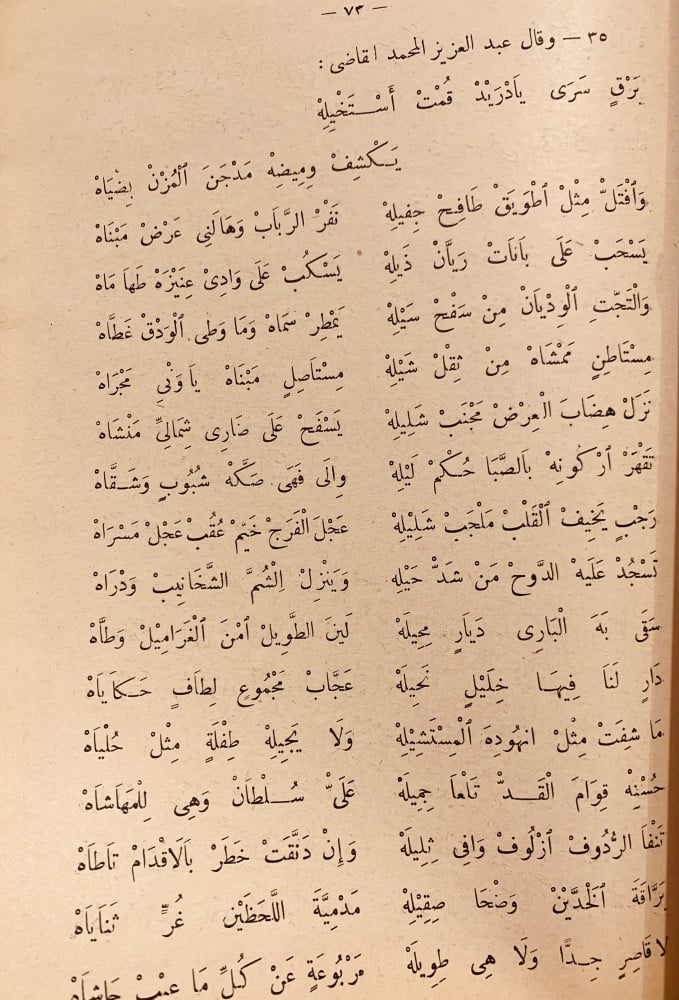 — ٧٣ —
٣٥ — وقال عبد العزيز المحمد القاضى :
بَرْقٍ سَرَى يَادْرَيْدْ قُمْتْ أَسْـتَـخْيِلِهْ
يَـكْشِفْ وِمِيضِهْ مَدْجَنَ اَلْمُزْنْ بِضْيَاهْ
وَاَفْتَلّْ مِثْلْ اَطْوَيَقْ طَافِحْ جِفِيلِهْ نَفْرْ الرَّبَابْ وَهَالَنِى عَرْضْ مَبْنَاهْ
يَسْحَبْ عَلَى بَانَاتْ رَيَّانْ ذَيلِهْ يَسْكُبْ عَلَى وَادِىْ عِنِيْزَهْ طَهَا مَاهْ
وَالْتَجَّتِ اَلْوِدْيَانْ مِنْ سَفْحْ سَيْلِهْ يَمْطِرْ سَمَاهْ وَمَا وَطى اَلْوَدْقْ غَطَّاهْ
مِسْتَاطِنٍ مَمْشَاهْ مِنْ ثِقْلْ شَيْلِهْ مِسْتَاصِلٍ مَبْنَاهْ يَا وَنّيْ مَجْرَاهْ
نَزَلْ هِضَابَ الْعِرْضْ مَجْنَبْ شَلِيلِهْ يَسْفَحْ عَلَى ضَارِى شِمَالِيّْ مَنْشَاهْ
تَقْهَرْ اَرْكُونِهْ بَالصَّبَا حُـكْمْ لَيْلِهْ وِالَى فَهَى صَكَّهْ شُبُوبٍ وَشَـقَّاهْ
رَجْبٍ يَخِيفْ اَلْقَلْبْ مَلْجَبْ شَلِيْلِهْ عَجْلَ الْفَرَجْ خَيَّمْ عُقُبْ عَجْلْ مَسْرَاهْ
تَسْجُدْ عَلَيهْ الدَّوحْ مَنْ شَدّْ حَيْلِهْ وَيَنْزِلْ اِلْشُمَّ الشَّخَانِيبْ وَدْرَاهْ
سَقَى بَهَ الْبَارِى دَيَارٍ مِحِيلَهْ لَينَ الطَّوِيلْ اَمْنَ اَلْغَرَامِيْلْ وَطَّاهْ
دَارٍ لَنَا فِيهَـا خِلِيْلٍ نَحِيلَهْ عَجَّابْ مَجْمُوعٍ لِطَافٍ حَـكَايَاهْ
مَا شِفَتْ مِثْلْ انهُودِهَ اَلْمِسْتَشِيْلِهْ وَلَا يَجِيلِهْ طِفْلَةٍ مِثْلْ حُلْيَاهْ
حُسْنِهْ قِوَامَ الْقَـدّْ تَلْعَا جِمِيلَهْ عَلَىَّ سُـلْطَانْ وَهِى لِلْمَهَاشَاهْ
تَنْفَا الرُّدُوفْ اَزْلُوفْ وَافِى ثِلِيلَهْ وَإِنْ دَنَّقَتْ خَطَرْ بَالَاقْدَامْ تَاطَاهْ
بَرَّاقَةَ اَلْخَدَّيْنْ وَضْحَا صِقِيْلِهْ مَدْمِيَّةَ اللَّحْظَيْنِ غُرٍّ ثَنَايَاهْ
لَا قَاصِرٍ جِـدًّا وَلَا هِى طِوِيلَهْ مَرْبُوعَةٍ عَنْ كُلّْ مَا عِيبْ حَاشَاهْ